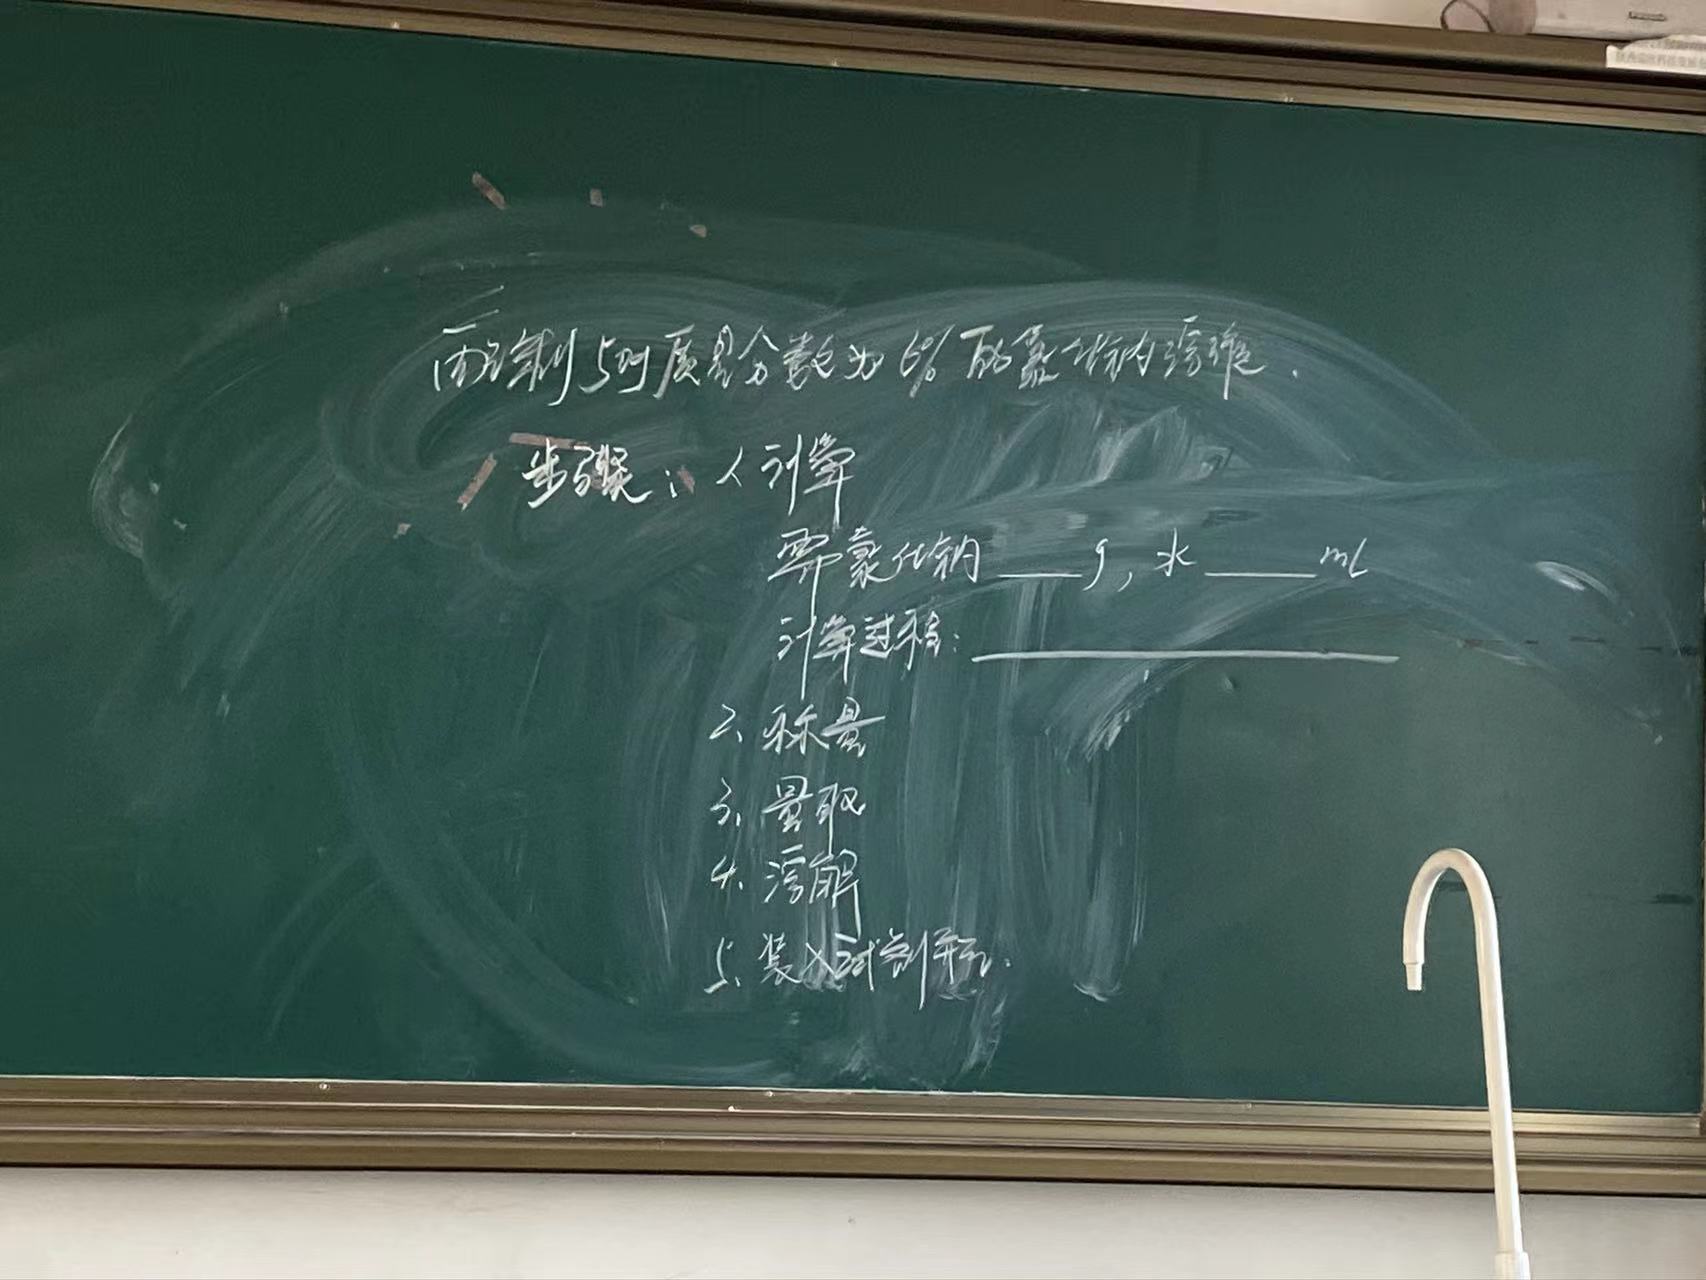 配制50g质量分数为6%的氯化钠溶液.
步骤: 1、计算
需氯化钠____g, 水____mL
计算过程:____________
2、称量
3、量取
4、溶解
5、装入试剂瓶.